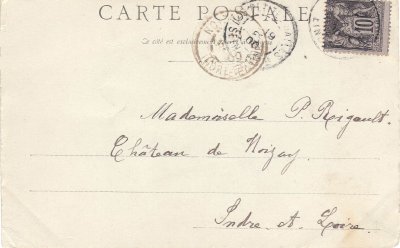 CARTE POSTALE
Ce côté est exclusivement
10
Mademoiselle P. Rigault.
Château de Noizay
Indre et Loire